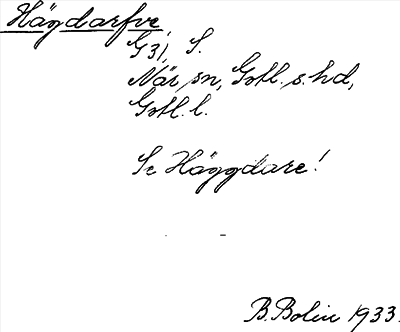 Hägdarfve
G31, S.
När sn, Gotl. s. hd,
Gotl. l.
Se Häggdare!
B. Bolin 1933.